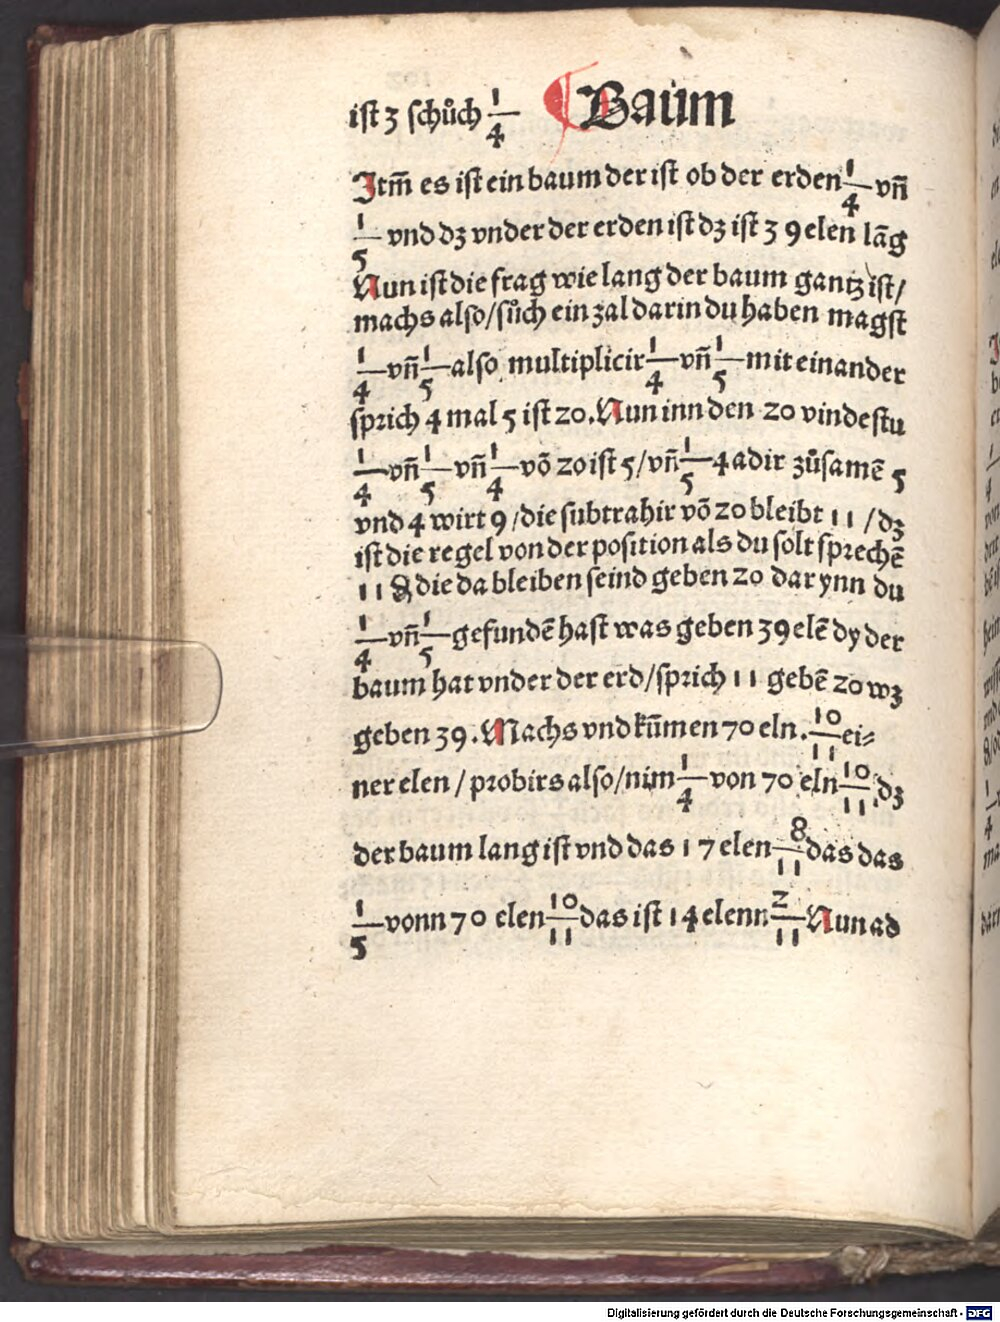 ist 3 schůch 1/4 Baum
Itm̄ es ist ein baum der ist ob der erden 1/4 vñ
1/5 vnd dz vnder der erden ist dz ist 39 elen lãg
Nun ist die frag wie lang der baum gantz ist/
machs also/sůch ein zal darin du haben magst
1/4 vñ 1/5 also multiplicir 1/4 vñ 1/5 mit einander
sprich 4 mal 5 ist 20. Nun inn den 20 vindestu
1/4 vñ 1/5 vñ 1/4 võ 20 ist 5/vñ 1/5 4 adir zůsamē 5
vnd 4 wirt 9/die subtrahir võ 20 bleibt 11/dz
ist die regel von der position als du solt sprechē
11 die da bleiben seind geben 20 dar ynn du
1/4 vñ 1/5 gefundē hast was geben 39 elē dy der
baum hat vnder der erd/sprich 11 gebē 20 wz
geben 39. Machs vnd kũmen 70 eln. 10/11 ei⸗
ner elen/probirs also/nim 1/4 von 70 eln 10/11 dz
der baum lang ist vnd das 17 elen 8/11 das das
1/5 vonn 70 elen 10/11 das ist 14 elenn 2/11 Nun ad
Digitalisierung gefördert durch die Deutsche Forschungsgemeinschaft - DFG